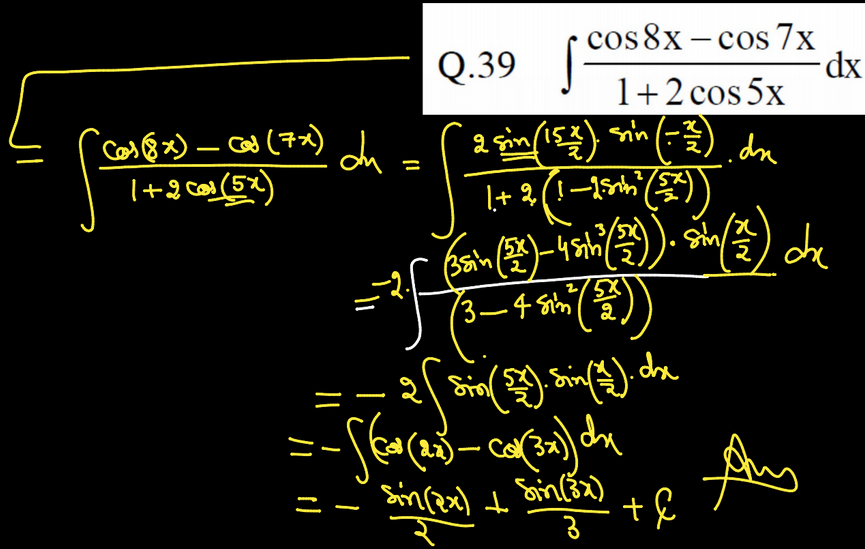 Q.39 ∫ (cos8x – cos 7x)/(1+2cos5x) dx
= ∫ (cos(8x) – cos(7x))/(1+2cos(5x)) dx = ∫ (2 sin(15x/2). sin(-x/2))/(1+2(1-2sin²(5x/2))) . dx
= -2. ∫ ((3sin(5x/2)-4sin³(5x/2)). sin(x/2))/(3-4sin²(5x/2)) dx
= -2∫ sin(5x/2). sin(x/2). dx
= -∫(cos(2x) - cos(3x)) dx
= - sin(2x)/2 + sin(3x)/3 + C Ans